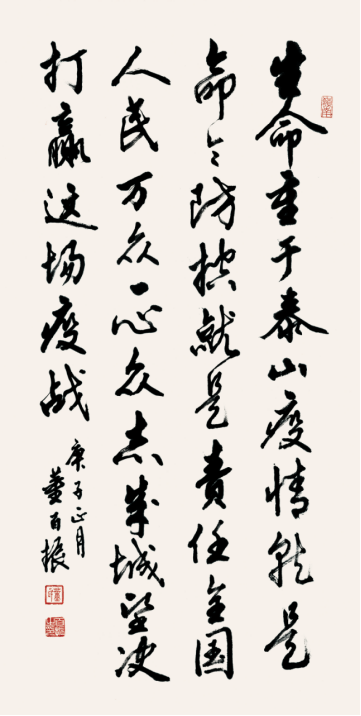 生命重于泰山疫情就是
命令防控就是责任全国
人民万众一心众志成城坚决
打赢这场疫战
庚子正月
董百振